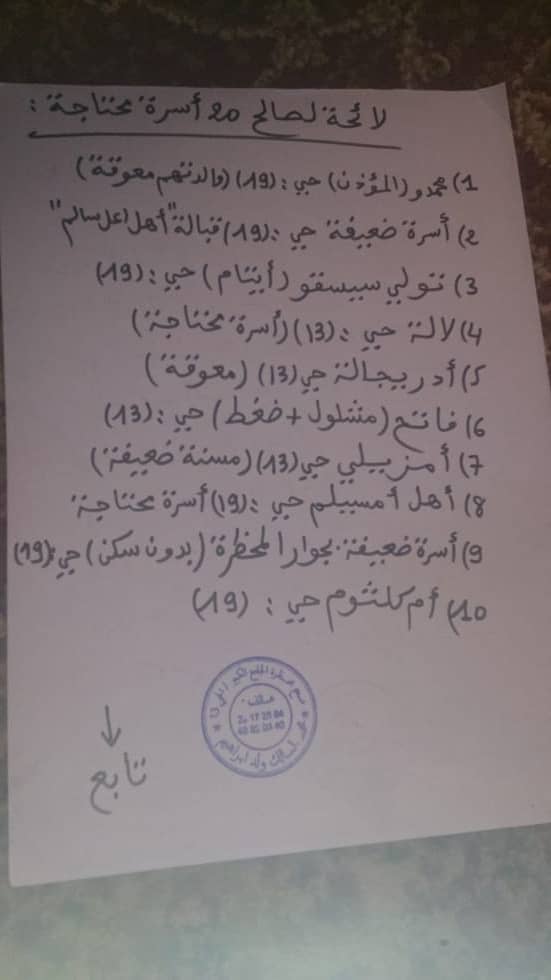 لائحة لصالح 20 أسرة محتاجة:
1) محمدو (المؤذن) حي: (19) (والدتهم معوقة)
2) أسرة ضعيفة حي: (19) قبالة "أهل اعل سالم"
3) تولي سيسقو (أيتام) حي: (19)
4) لالة حي: (13) (أسرة محتاجة)
5) أدريجالة حي (13) (معوقة)
6) فاتح (مشلول + ضغط) حي: (13)
7) أمزبيلي حي (13) (مسنة ضعيفة)
8) أهل أمسيلم حي: (19) أسرة محتاجة
9) أسرة ضعيفة بجوار المحظرة (بدون سكن) حي: (19)
10) أم كلثوم حي: (19)
هاتف:
محمد السالك ولد ابراهيم
↓
تابع